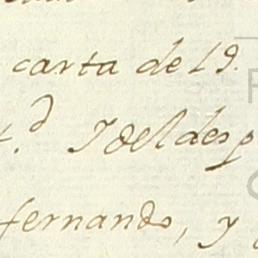 carta de 19.
Y del desp
fernando, y